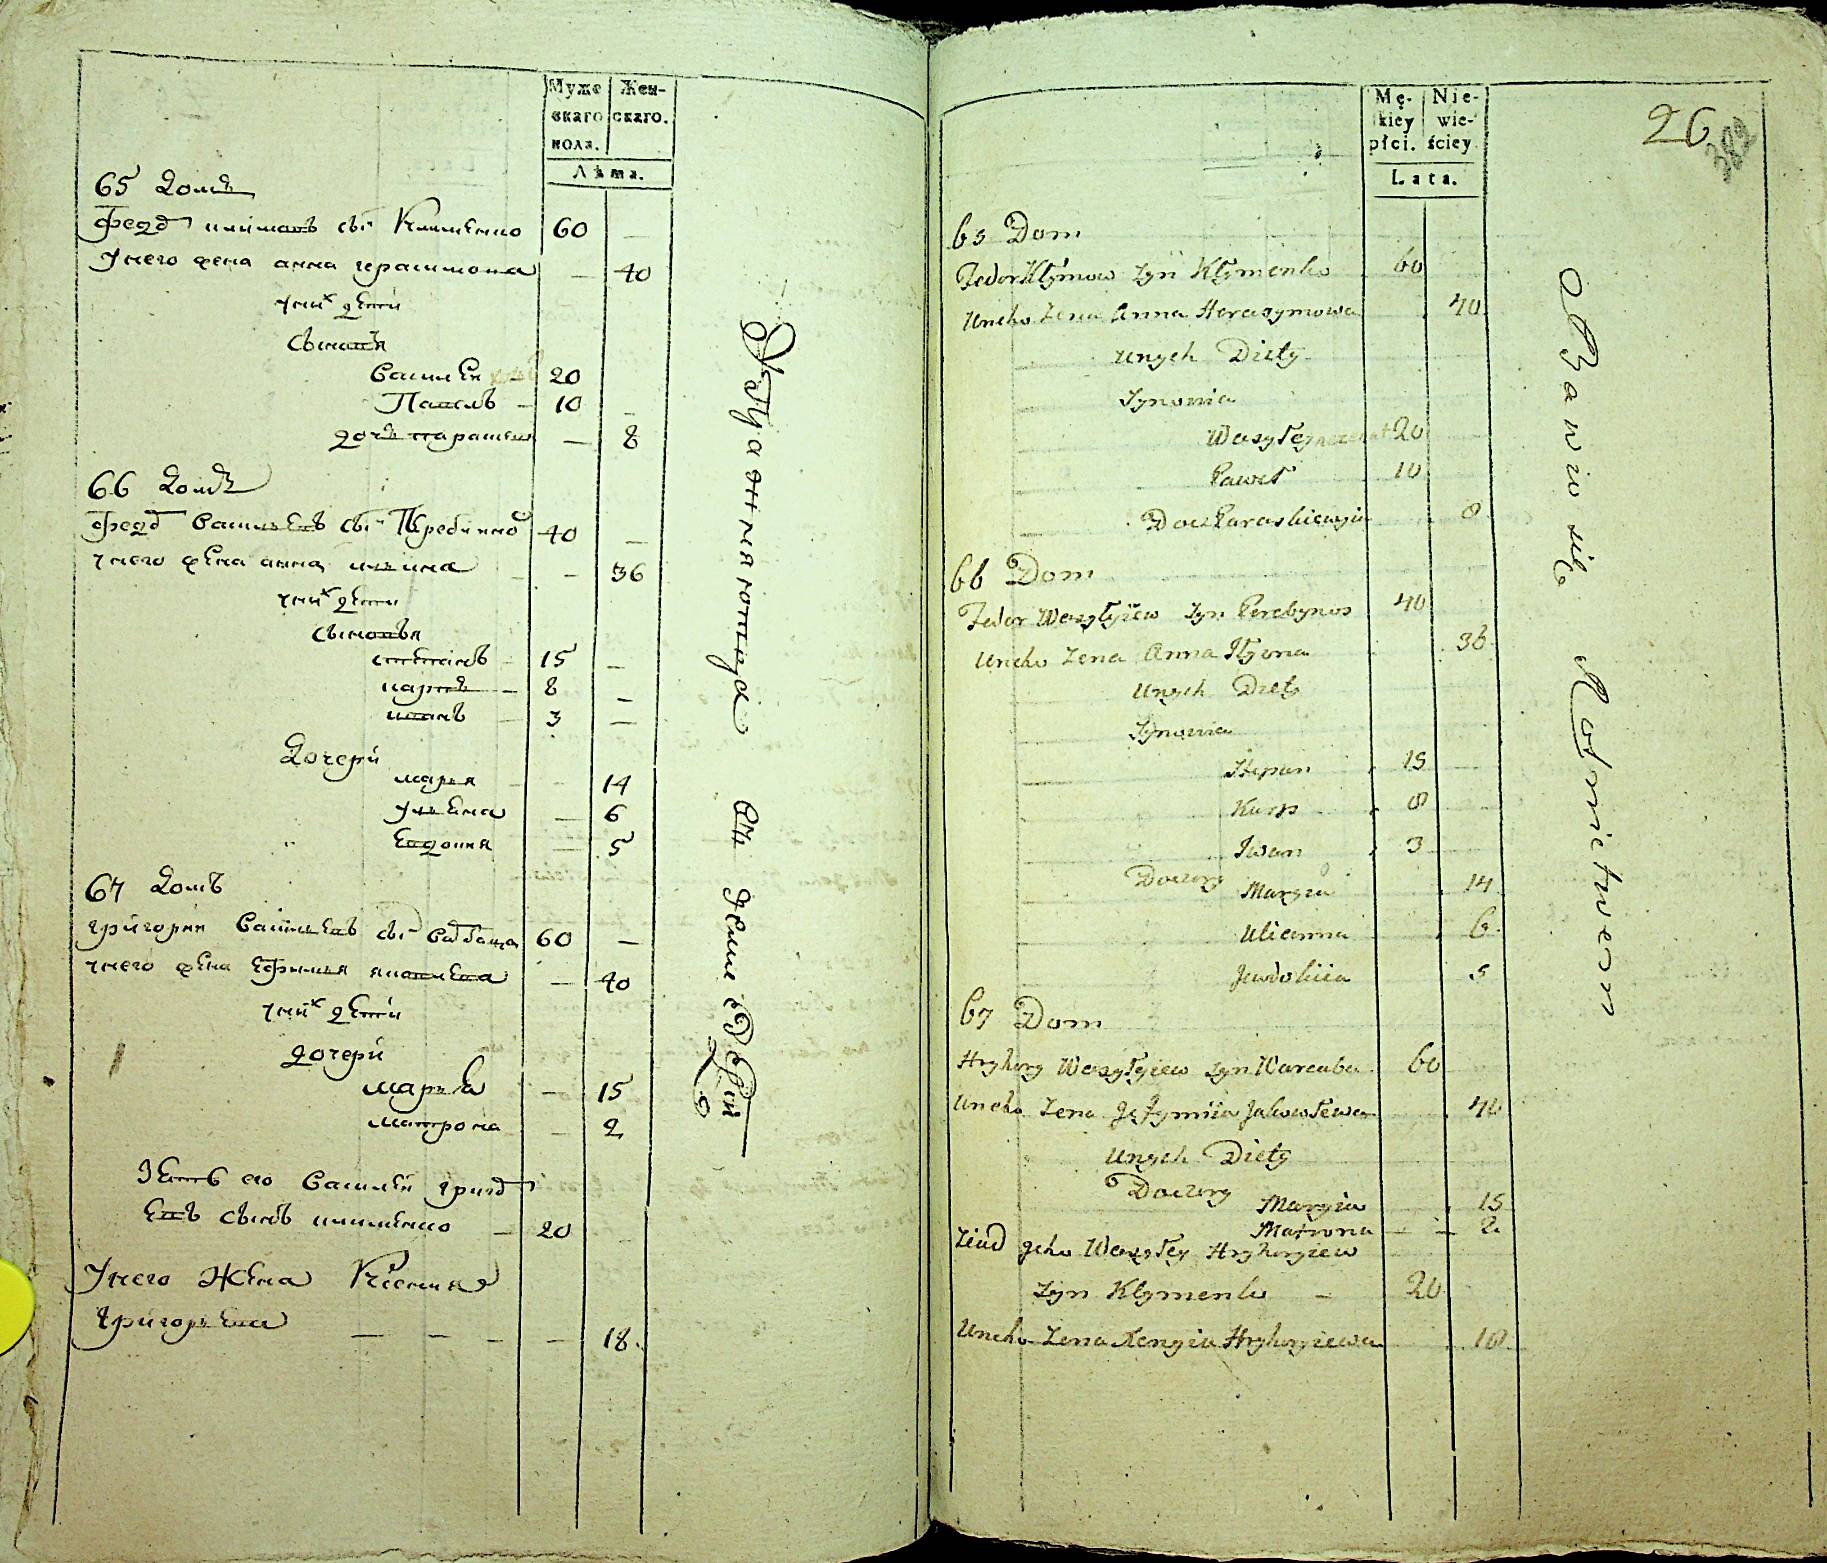 Муже Жен-
скаго скаго.
пола.
Лѣта.
65 домъ
Федръ климовъ снъ Клименко 60 —
Унего жена анна герасимова — 40
униҳ дети
сыновья
Василей 20
Павелъ — 10 —
дочь парасков — 8
66 домъ
Федръ Васильевъ снъ Перебинос 40 —
унего жена анна ильина — 36
униҳ дети
сыновья
степанъ — 15 —
карпъ — 8 —
иванъ — 3 —
Дочери
марья — 14
Ульяна — 6
Евдокия — 5
67 домъ
григорий Васильевъ снъ Варгаба 60 —
унего жена Ефимия яковлева — 40
униҳ дети
дочери
марья — 15
матрона — 2
Зеть его Василей григор
евъ сынъ клименко — 20
Унего Жена Ксения
Григорьева — — — — 18
Упражняютца въ земледелии
Mę- Nie-
kiey wie-
płci. ściey
Lata.
26
382
65 Dom
Fedor Kłymow Syn Kłymenko 60
Uneho Zena Anna Herasymowa 40
Unych Diety
Synowia
Wasyłey 20
Paweł 10
Docz Paraskiewyia 8
66 Dom
Fedor Wasyłyiew Syn Perebynos 40
Uneho Zena Anna Iłyina 36
Unych Diety
Synowia
Stepan 15
Karp 8
Iwan 3
Doczery Maryia 14
Ulianna 6
Jewdokiia 5
67 Dom
Hryhory Wasyłyiew Syn Warcaba 60
Uneho Zena Jefymiia Jakowlewa 40
Unych Diety
Doczery Maryia 15
Matrona — — 2
Ziat jeho Wasyłey Hryhoryiew
Syn Klymenko — 20
Uneho Zena Xenyia Hryhoryiewa 18
Bawio się Rolnictwem